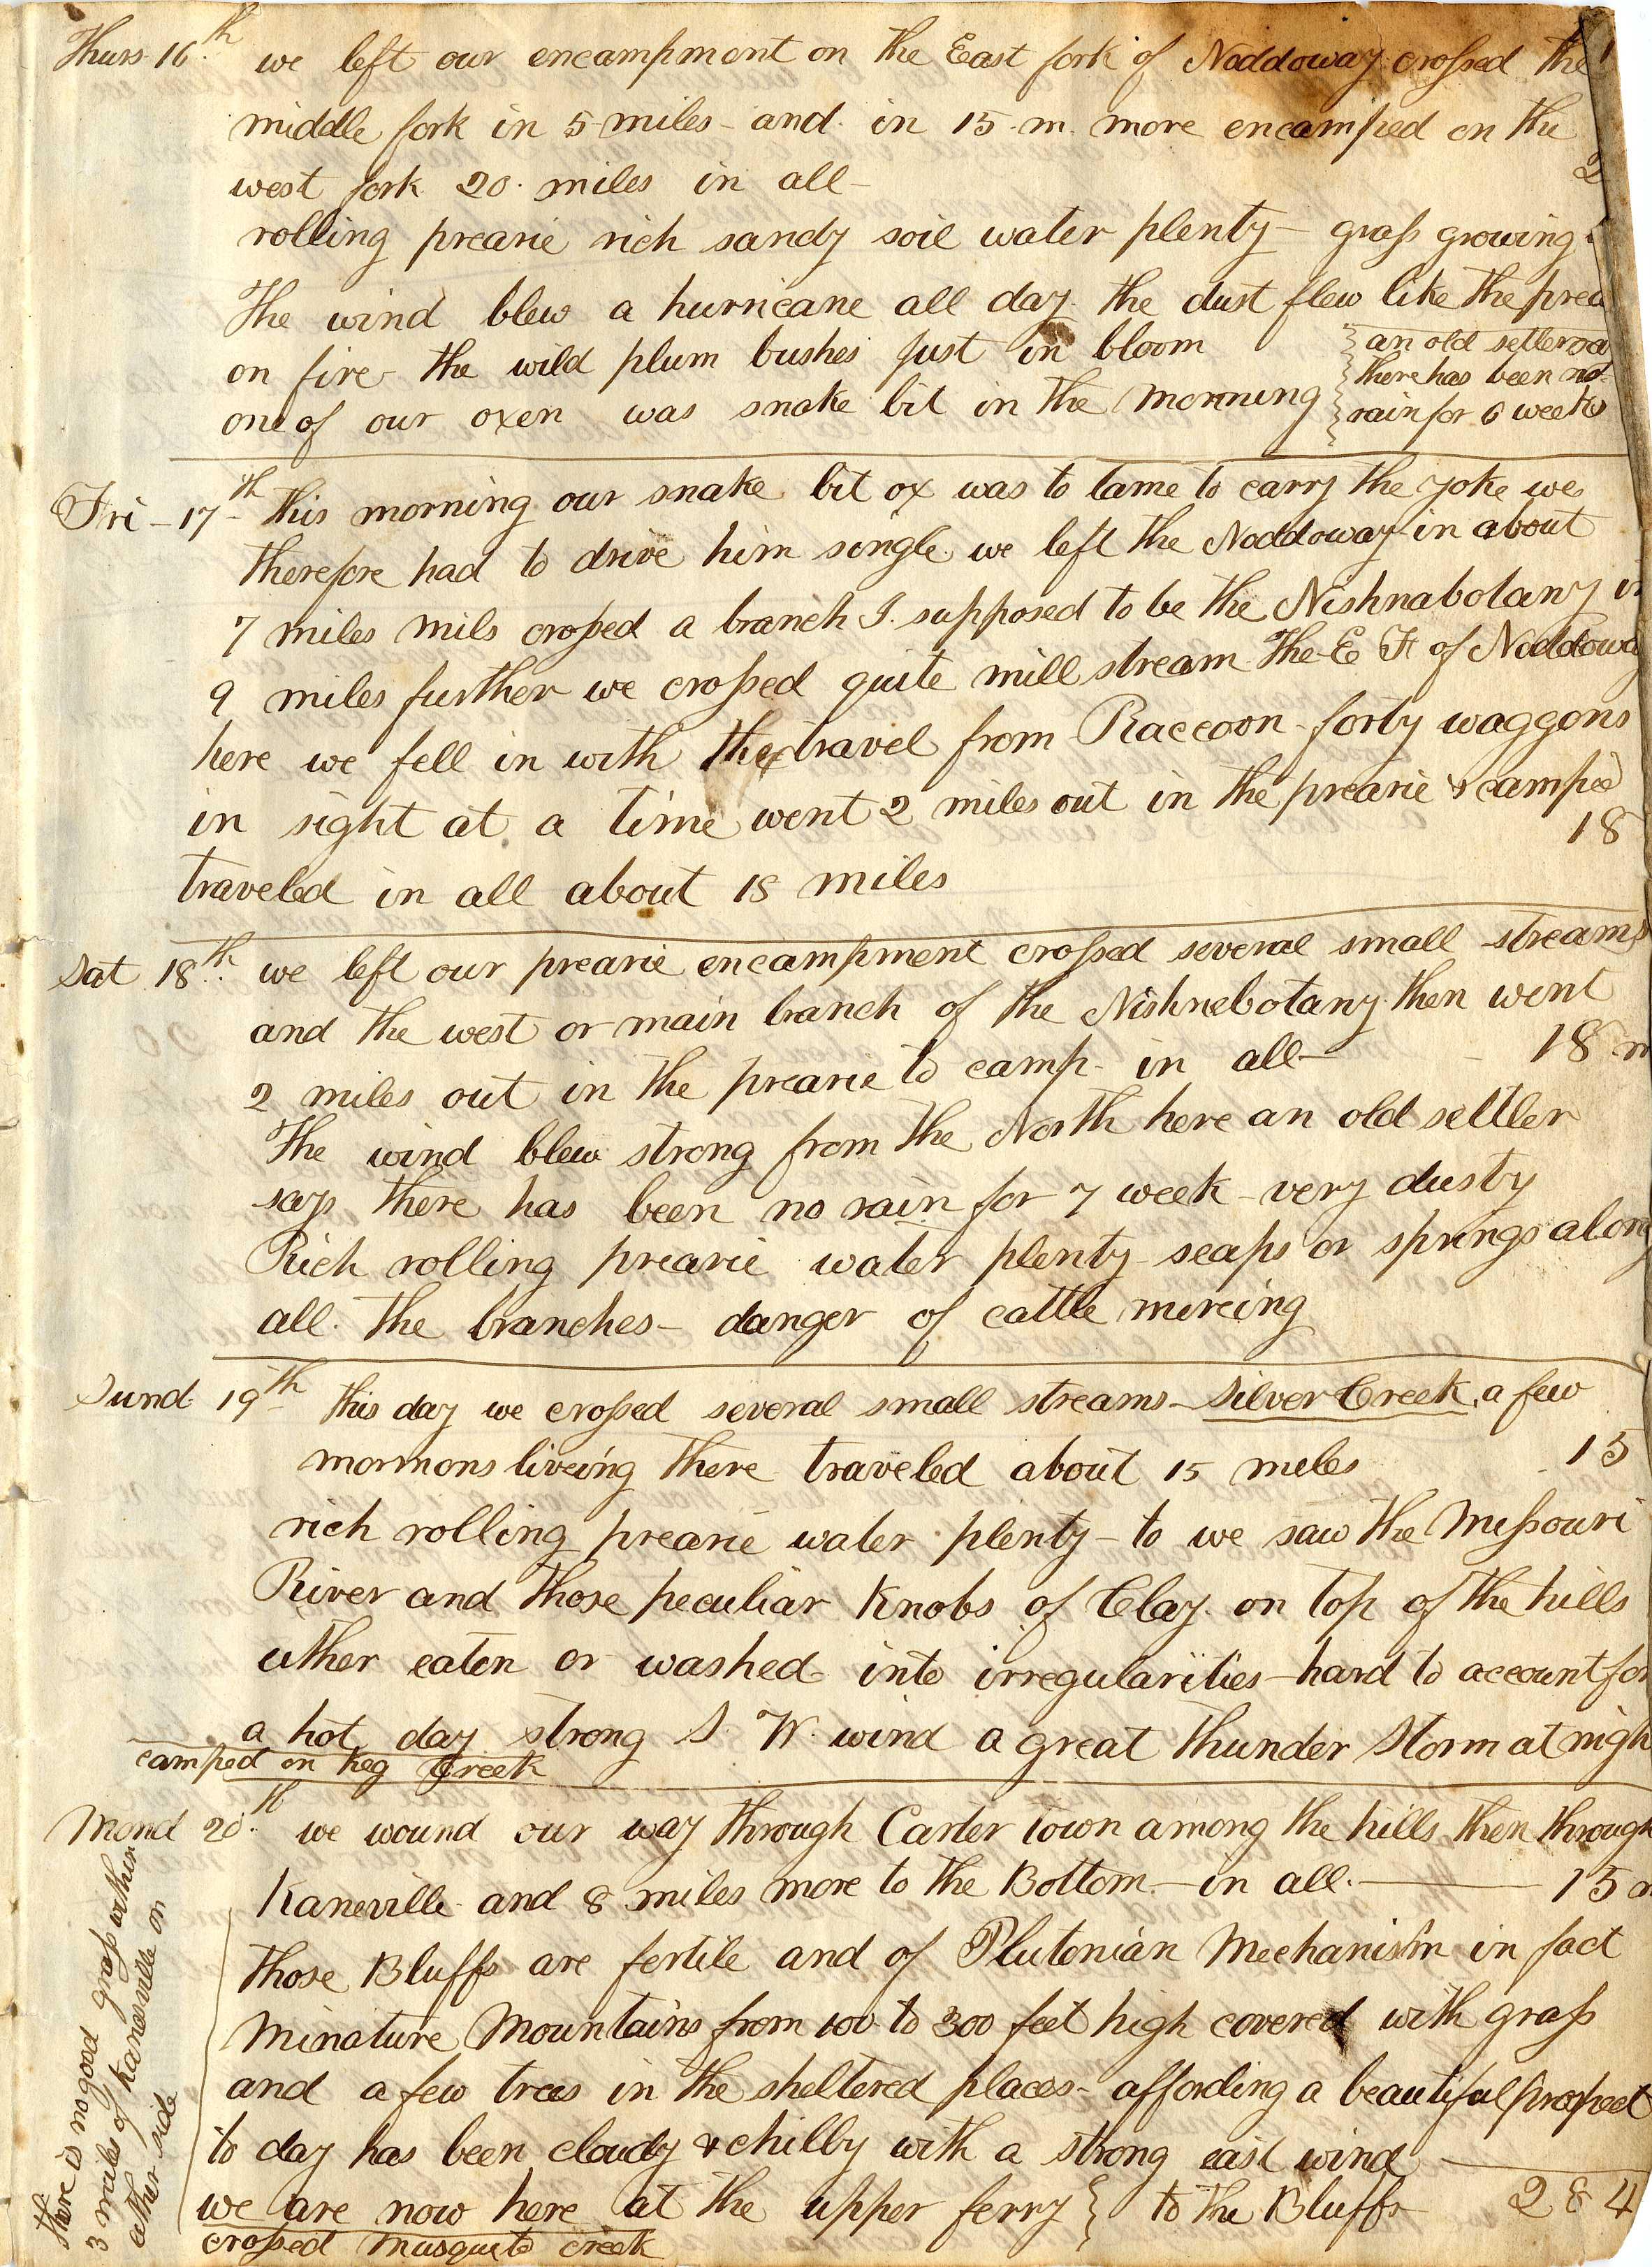 Thurs 16th we left our encampment on the East fork of Noddoway crossed the
middle fork in 5 miles - and in 15 m. more encamped on the
west fork 20. miles in all - 2
rolling prearie rich sandy soil water plenty - grass growing
The wind blew a hurricane all day the dust flew like the prea
on fire - the wild plum bushes just in bloom
one of our oxen was snake bit in the morning
an old settler sa
there has been no
rain for 6 weeks
Fri - 17th this morning our snake bit ox was to lame to carry the yoke we
therefore had to drive him single. we left the Noddoway in about
7 miles mils crossed a branch I supposed to be the Nishnabotany in
9 miles further we crossed quite mill stream The E F of Noddoway
here we fell in with the travel from Raccoon - forty waggons
in sight at a time went 2 miles out in the prearie & camped
18
traveled in all about 18 miles
Sat 18th. we left our prearie encampment crossed several small streams
and the west or main branch of the Nishnebotany then went
2 miles out in the prearie to camp - in all - 18 m
The wind blew strong from the North here an old settler
says there has been no rain for 7 week - very dusty
Rich rolling prearie water plenty - seaps or springs along
all. the branches - danger of cattle mireing
Sund 19th this day we crossed several small streams - Silver Creek, a few
mormons liveing there traveled about 15 miles 15
rich rolling prearie water plenty - to we saw the Missouri
River and those peculiar Knobs of Clay. on top of the hills
either eaten or washed into irregularities - hard to account for
a hot day strong S. W. wind a great thunder Storm at nigh
camped on Keg Creek
Mond 20th. we wound our way through Carter town among the hills then through
Kaneville and 8 miles more to the Bottom - in all. - 15 m
those Bluffs are fertile and of Plutonian Mechanism in fact
Minature Mountains from 100 to 300 feet high covered with grass
and a few trees in the sheltered places - affording a beautiful prospect
to day has been cloudy & chilly with a strong east wind
we are now here at the upper ferry } to the Bluffs 284
crossed Musqueto creek
there is no good grass within
3 miles of Kanesville on
either side